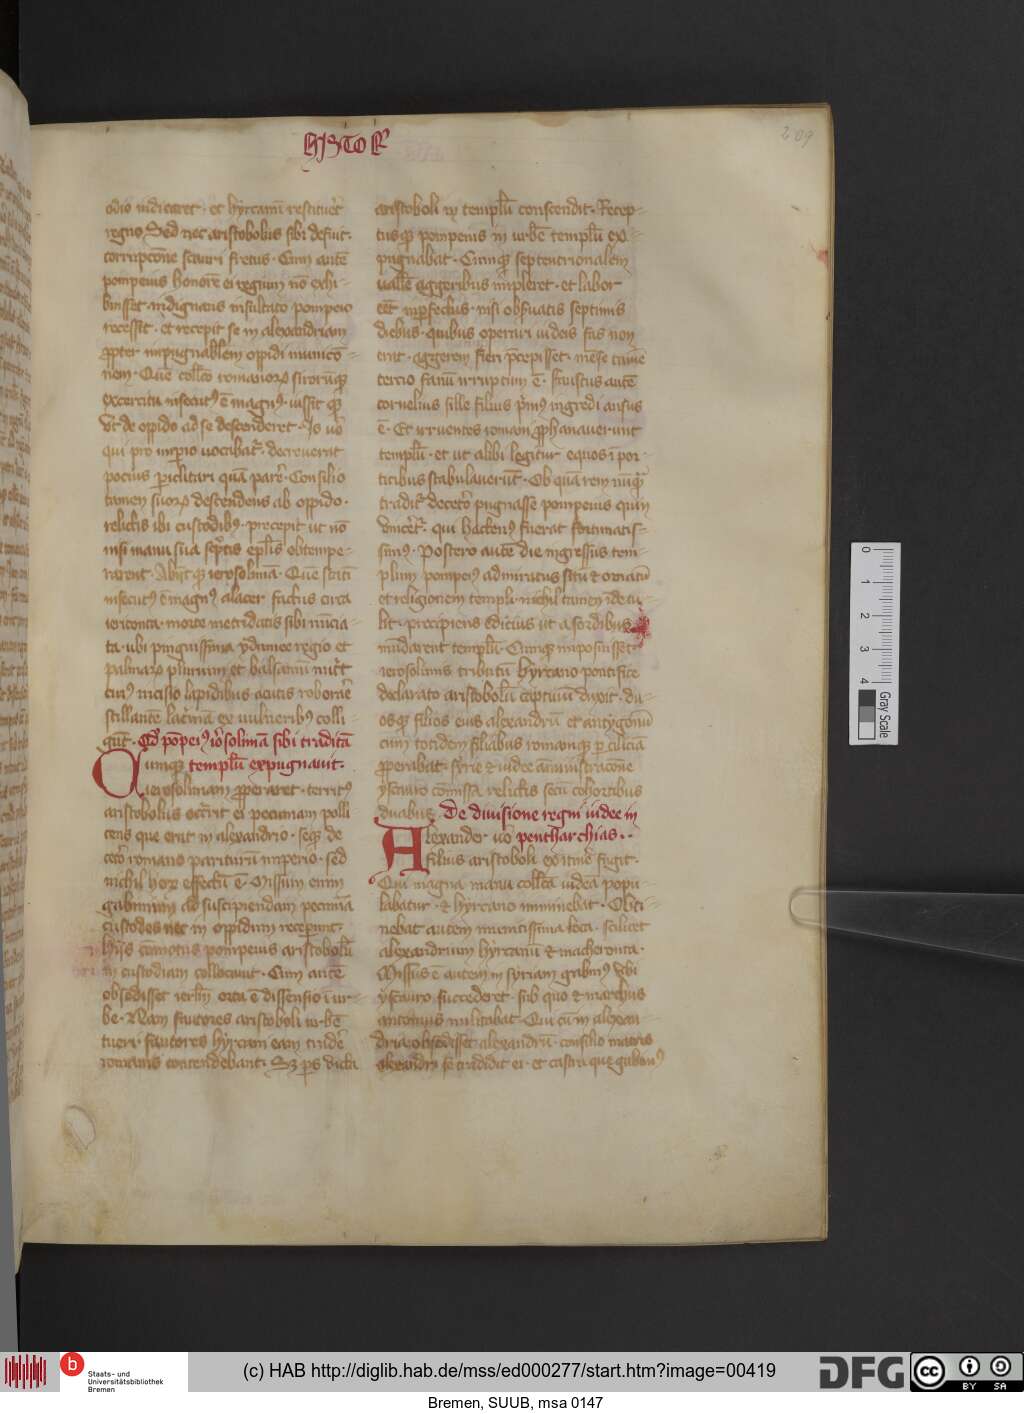 HISTOR
209
odio iudicaret · et hyrcanū restitueret
regno. Sed nec aristobolus sibi defuit.
corrupcōne scauri fretus · Cum autē
pompeius honorē ei regium nō exhi-
buisset · indignatus insultato pompeio
recessit · et recepit se in alexandriam
ꝓpter impugnabilem oppidi municō-
nem · Quē collcō romanoꝝ siroruꝫqꝫ
excercitu insecutꝰ ē magnꝰ · iussit qꝫ
ut de oppido ad se descenderet · Is uō
qui pro imperio uocibat · decreuerat
pocius periclitari quā parere · Consilio
tamen suoꝝ descendens ab oppido ·
relictis ibi custodibꝰ · precepit ut nō
nisi manu sua scptis eplis obtempe-
rarent · Abijt qꝫ ierosolimā · Quē statī
insecutꝰ ē magnꝰ alacer factus circa
iericonta · morte metridatis sibi nūcia-
ta · ubi pinguissima ydumee regio et
palmaꝝ plurium et balsamū nutrit
cuiꝰ inciso lapidibus acutis robore
stillantē lacrimā ex uulneribꝰ colli-
gūt · Qđ pōpeiꝰ ierosolimā sibi traditā
Cumqꝫ templū expugnauit.
ierosolimam ꝓperaret · territꝰ
aristobolus occurrit ei pecuniam polli
cens que erat in alexandrio · seqꝫ de
cetero romanis pariturū imperio · sed
nichil horꝝ effectū ē · Missum enim
gabinium ad suscipiendam pecuniā
custodes nec in oppidum receperunt ·
Hijs cōmotus pompeius aristobolū
in custodiam collocauit · Cum autē
obsedisset ierlm̄ orta ē dissensio ī ur-
be · Nam fautores aristoboli urbē
tueri · fautores hyrcani eam tradere
romanis contendebant · Sꝫ ps victa
aristoboli in templū conscendit · Recep-
tusqꝫ pompeius in urbē templū ex-
pugnabat · Cumqꝫ septentrionalem
uallē aggeribus impleret · et labor
eēt inperfectus · nisi obseruatis septimis
diebus · quibus operari iudeis fas non
erat · aggerem fieri p̄cepisset · mense tamē
tercio fanū irruptum ē · faustus autē
cornelius sille filius primꝰ ingredi ausus
ē · Et irruentes romani ꝓphanauerunt
templū · et ut alibi legitur equos ī por-
ticibus stabulauerūt · Ob quā rem nunqꝫ
tradit decetero pugnasse pompeius quin
vinceret · qui hactenꝰ fuerat fortunatis-
simꝰ · Postero autē die ingressus tem-
plum pompeiꝰ admiratus situ & ornatu
et religionem templi · nichil tamen īde tu-
lit · precipiens edituis ut a sordibus
mūdarent templū · Cumqꝫ imposuisset
ierosolimis tributū hyrcano pontifice
declarato aristobolū captiuū duxit · du-
osqꝫ filios eius alexandrū et antygonū
cum totidem filiabus romamqꝫ per ciliciā
ꝓperabat · syrie & iudee amministracōne
yscauro cōmissa relictis secū cohortibus
duabus · De diuisione regni iudee in
Alexander uō penthar chias ··
filius aristoboli ex itinere fugit ·
Qui magna manu collcā iudeā popu-
labatur · & hyrcano imminebat · Obti-
nebat autem munitissima loca · scilicet
alexandrium hyrcaniū & macheronta ·
Missus ē autem in syriam gabinꝰ ubi
yscauro succederet · sub quo & marchus
antonius militabat · Qui cū in alexan-
drio obsedisset alexandrū · consilio matris
alexandri se tradidit ei · et castra que gabinꝰ
0
1
2
3
4
Gray Scale
b
Staats- und
Universitätsbibliothek
Bremen
(c) HAB http://diglib.hab.de/mss/ed000277/start.htm?image=00419
DFG
cc
BY SA
Bremen, SUUB, msa 0147